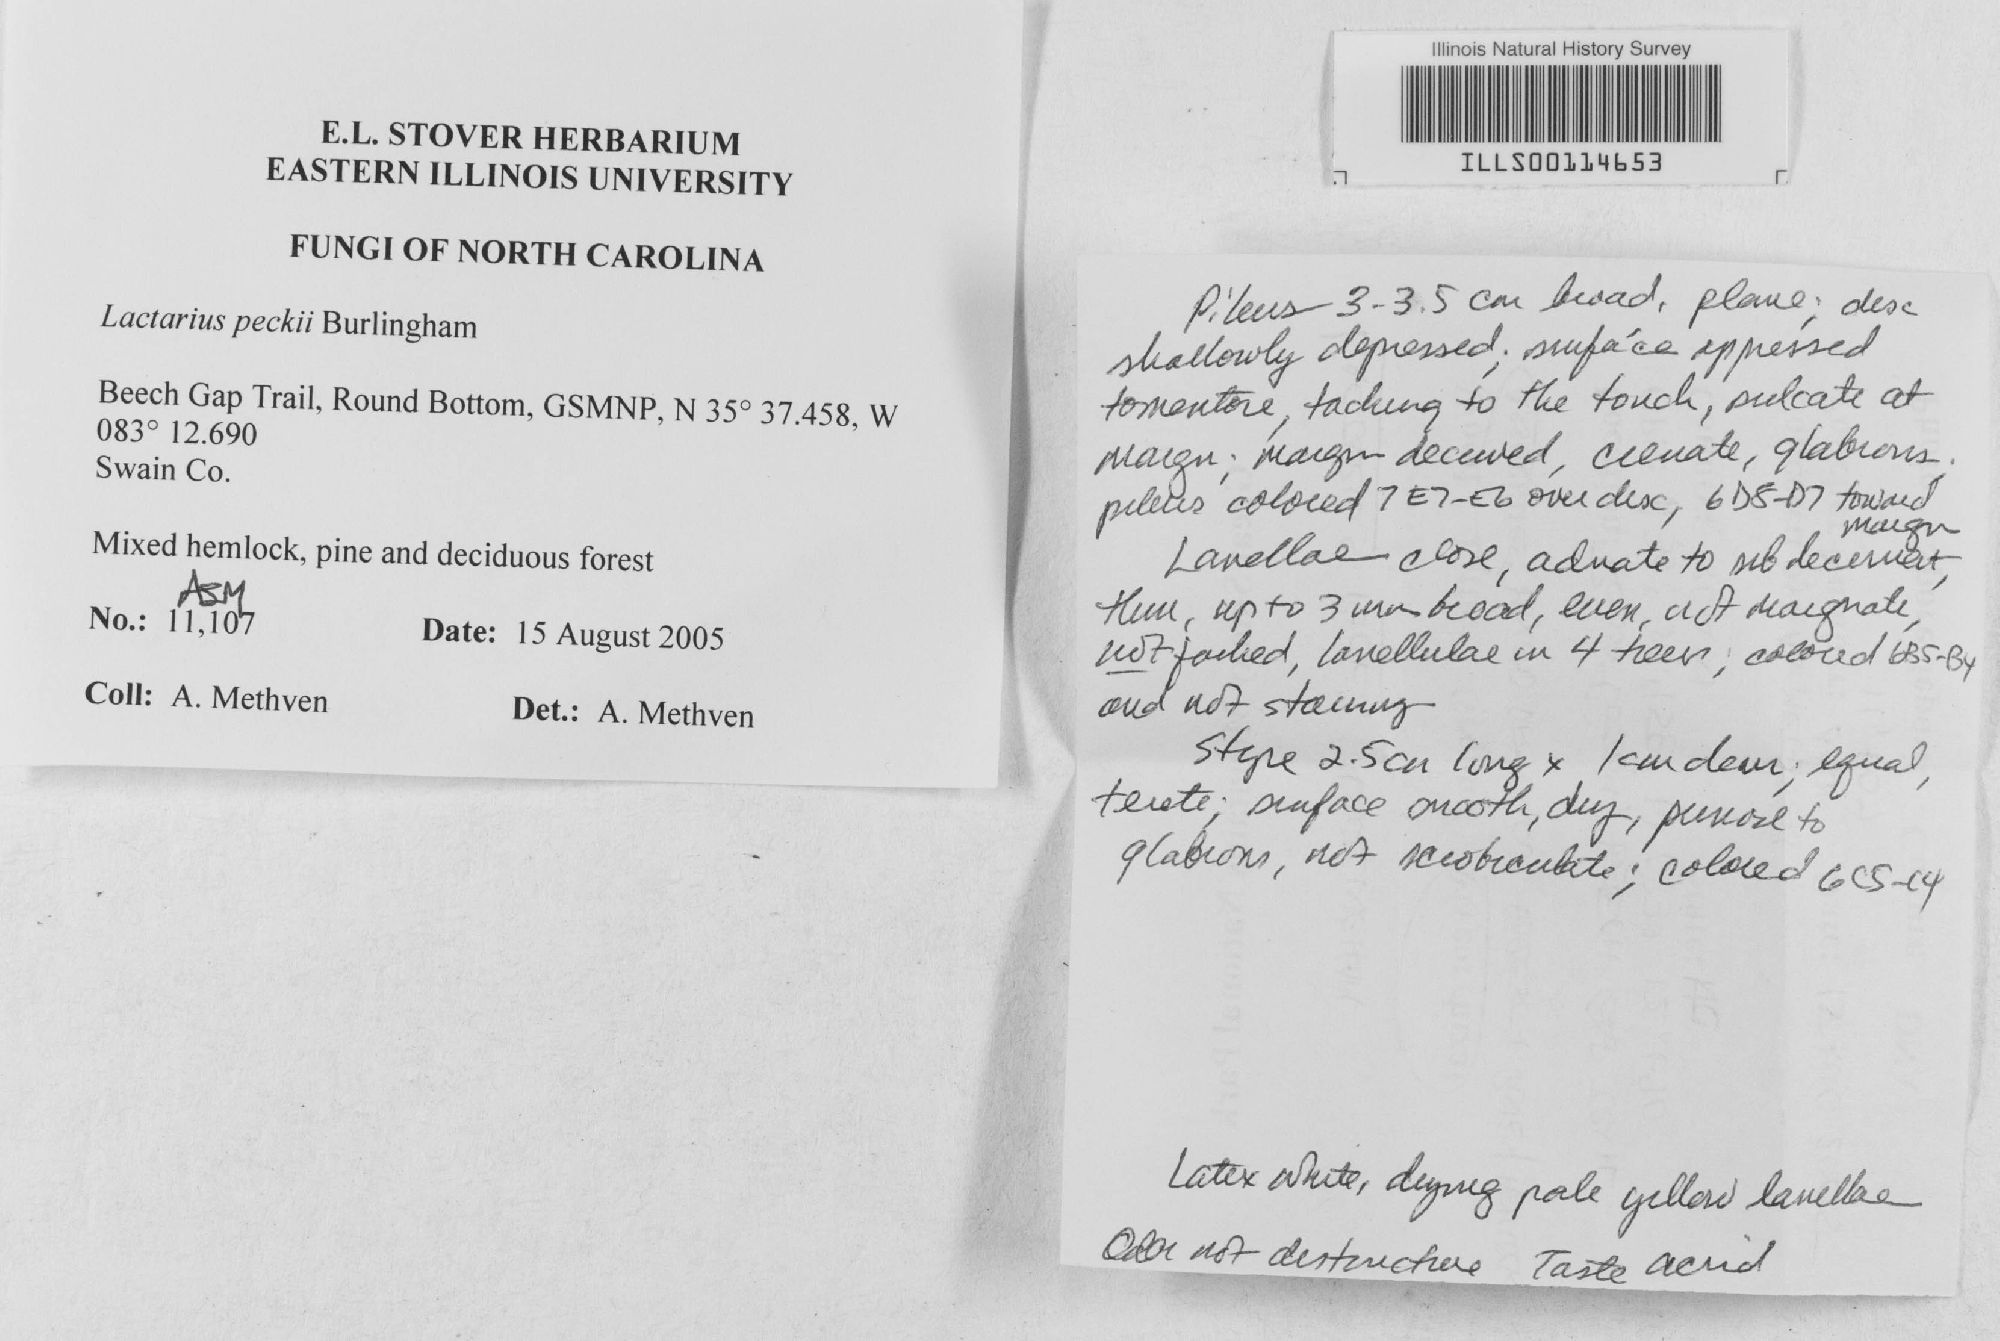 E.L. STOVER HERBARIUM
EASTERN ILLINOIS UNIVERSITY
FUNGI OF NORTH CAROLINA
Lactarius peckii Burlingham
Beech Gap Trail, Round Bottom, GSMNP, N 35° 37.458, W
083° 12.690
Swain Co.
Mixed hemlock, pine and deciduous forest
ASM
No.: 11,107 Date: 15 August 2005
Coll: A. Methven Det.: A. Methven
Illinois Natural History Survey
ILLS00114653
Pileus 3-3.5 cm broad, plane; disc
shallowly depressed; surface appressed
tomentose, tacking to the touch, sulcate at
margin; margin decurved, crenate, glabrous;
pileus colored 7E7-E6 over disc, 6D8-D7 toward
margin
Lamellae close, adnate to subdecurrent,
thin, up to 3 mm broad, even, not marginate,
not forked, lamellulae in 4 tiers; colored 6B5-B4
and not staining
Stipe 2.5 cm long x 1 cm diam; equal,
terete; surface smooth, dry, pruinose to
glabrous, not scrobiculate; colored 6C5-C4
Latex white, drying pale yellow lamellae
Odor not distinctive Taste acrid